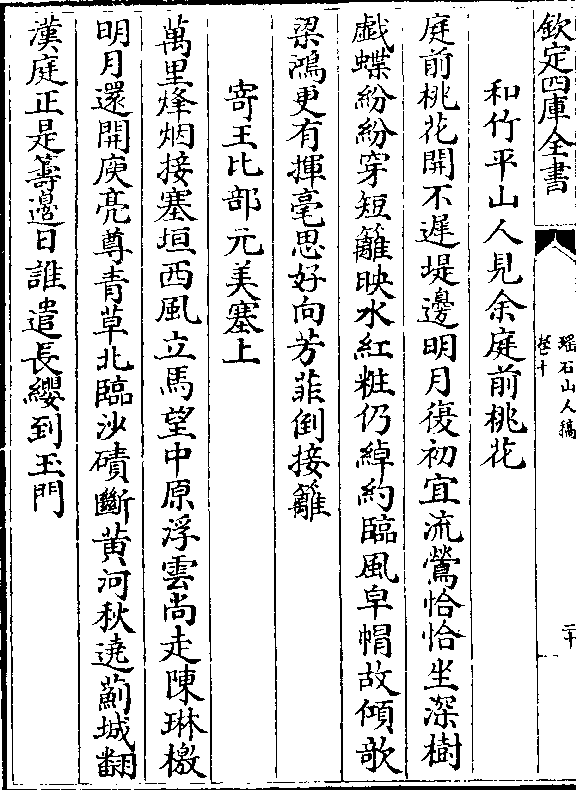 欽定四庫全書
瑶石山人稿
卷十
二十
和竹平山人見余庭前桃花
庭前桃花開不遲堤邊明月復初宜流鶯恰恰坐深樹
戲蝶紛紛穿短籬映水紅粧仍綽約臨風皁帽故傾欹
梁鴻更有揮毫思好向芳菲倒接䍦
寄王比部元美塞上
萬里烽烟接塞垣西風立馬望中原浮雲尚走陳琳檄
明月還開庾亮尊青草北臨沙磧斷黄河秋遶薊城翻
漢庭正是籌邊日誰遣長纓到玉門